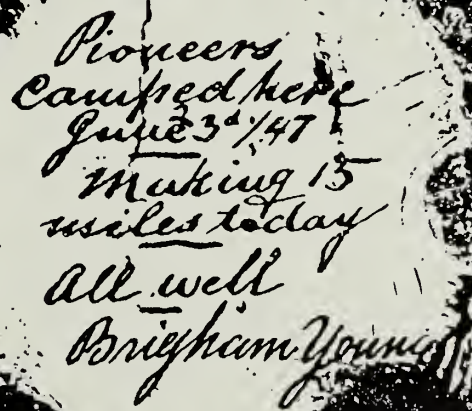 Pioneers
camped here
June 3d 1/47
making 15
miles today
All well
Brigham Young